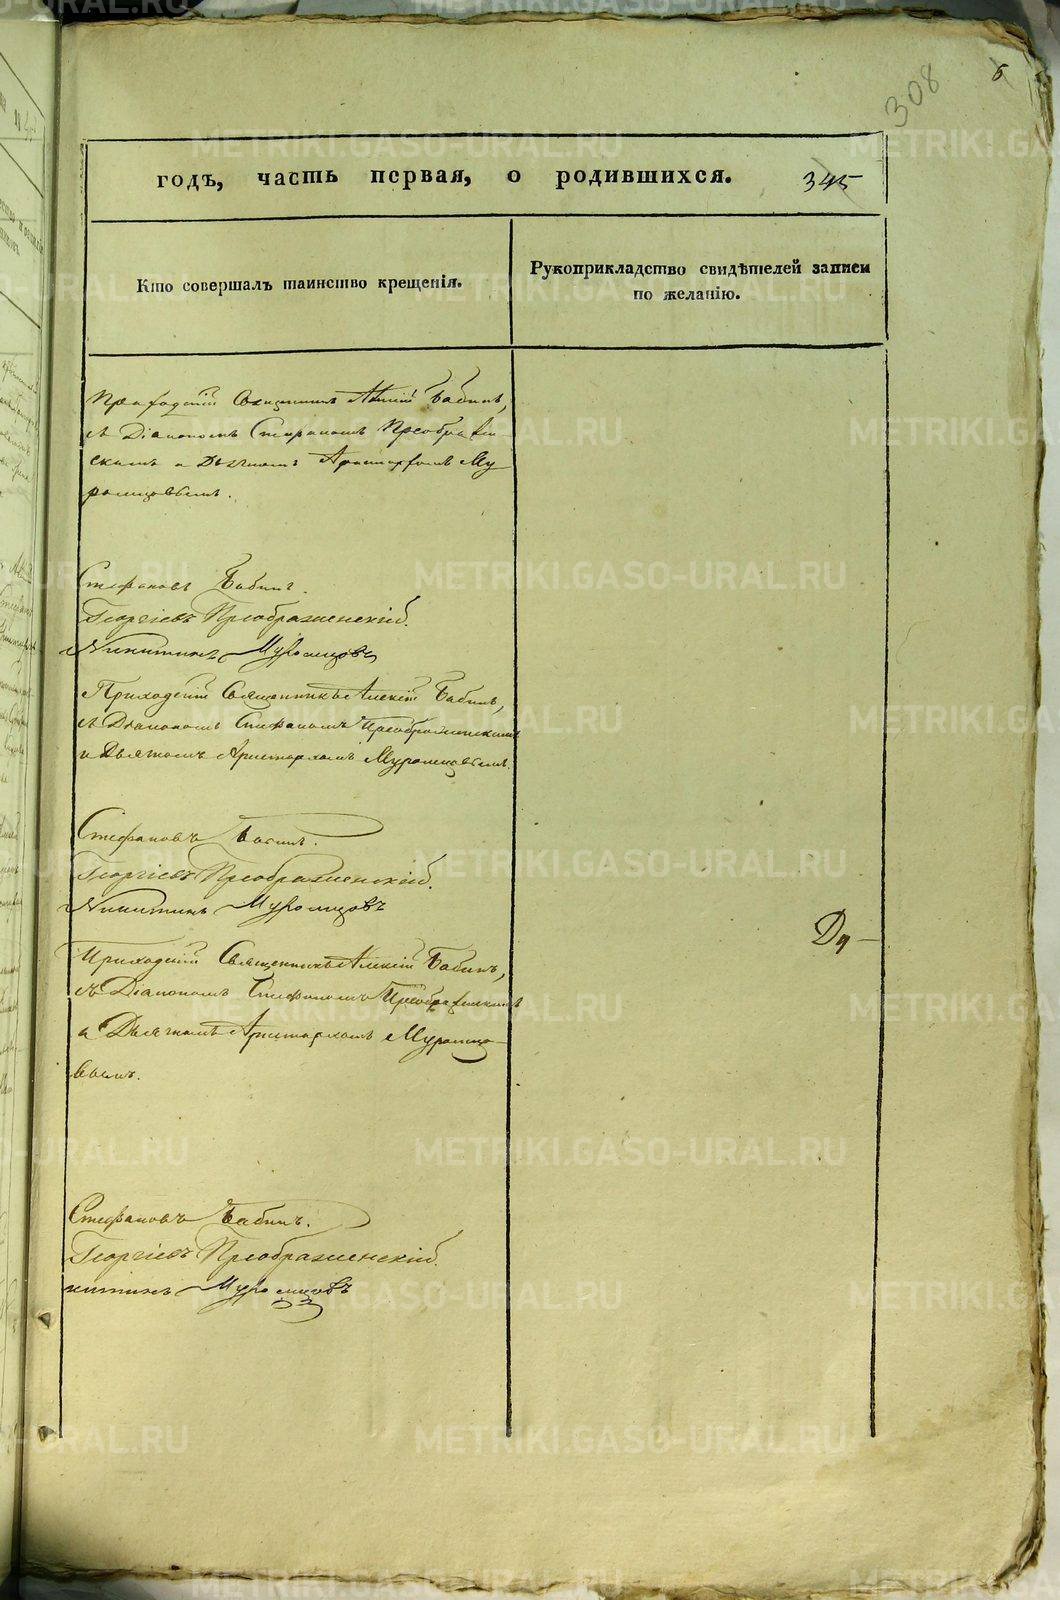 308
6
годъ, часть первая, о родившихся. 345
Кто совершалъ таинство крещенія.
Рукоприкладство свидѣтелей записи
по желанію.
Приходскій Священникъ Алексій Бабинъ,
съ Діакономъ Стефаномъ Преображен-
скимъ и Дьячкомъ Аристархомъ Му
ромцовымъ.
Стефановъ Бабинъ.
Георгіевъ Преображенскій.
Никитинъ Муромцовъ
Приходскій Священникъ Алексій Бабинъ,
съ Діакономъ Стефаномъ Преображенскимъ
и Дьячкомъ Аристархомъ Муромцовымъ.
Стефановъ Бабинъ.
Георгіевъ Преображенскій.
Никитинъ Муромцовъ
Приходскій Священникъ Алексій Бабинъ,
съ Діакономъ Стефаномъ Преображенскимъ
и Дьячкомъ Аристархомъ Муромцо-
вымъ.
Стефановъ Бабинъ.
Георгіевъ Преображенскій.
китинъ Муромцовъ
METRIKI.GASO-URAL.RU